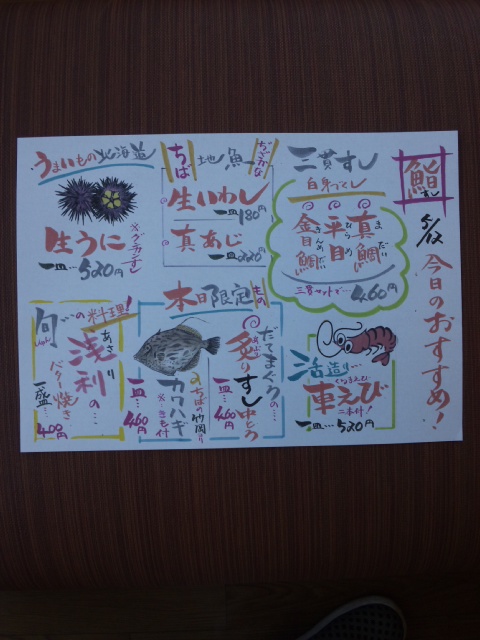 鮨
すし
今日のおすすめ！
三貫すし
白身づくし
真鯛
まだい
平目
ひらめ
金目鯛
きんめだい
三貫セットで…460円
活造り…
車えび
くるまえび
二本付！
一皿…520円
ちば
地魚
生いわし
一皿180円
真あじ
一皿220円
本日限定
もの
だてまぐろの…
炙り
あぶり
すし
中とろ
一皿…460円
ちばの竹岡の
カワハギ
※きも付
一皿…460円
うまいもの北海道
生うに
※グンカンすし
一皿…520円
旬の料理！
浅利の…
あさり
バター焼き
一盛…400円